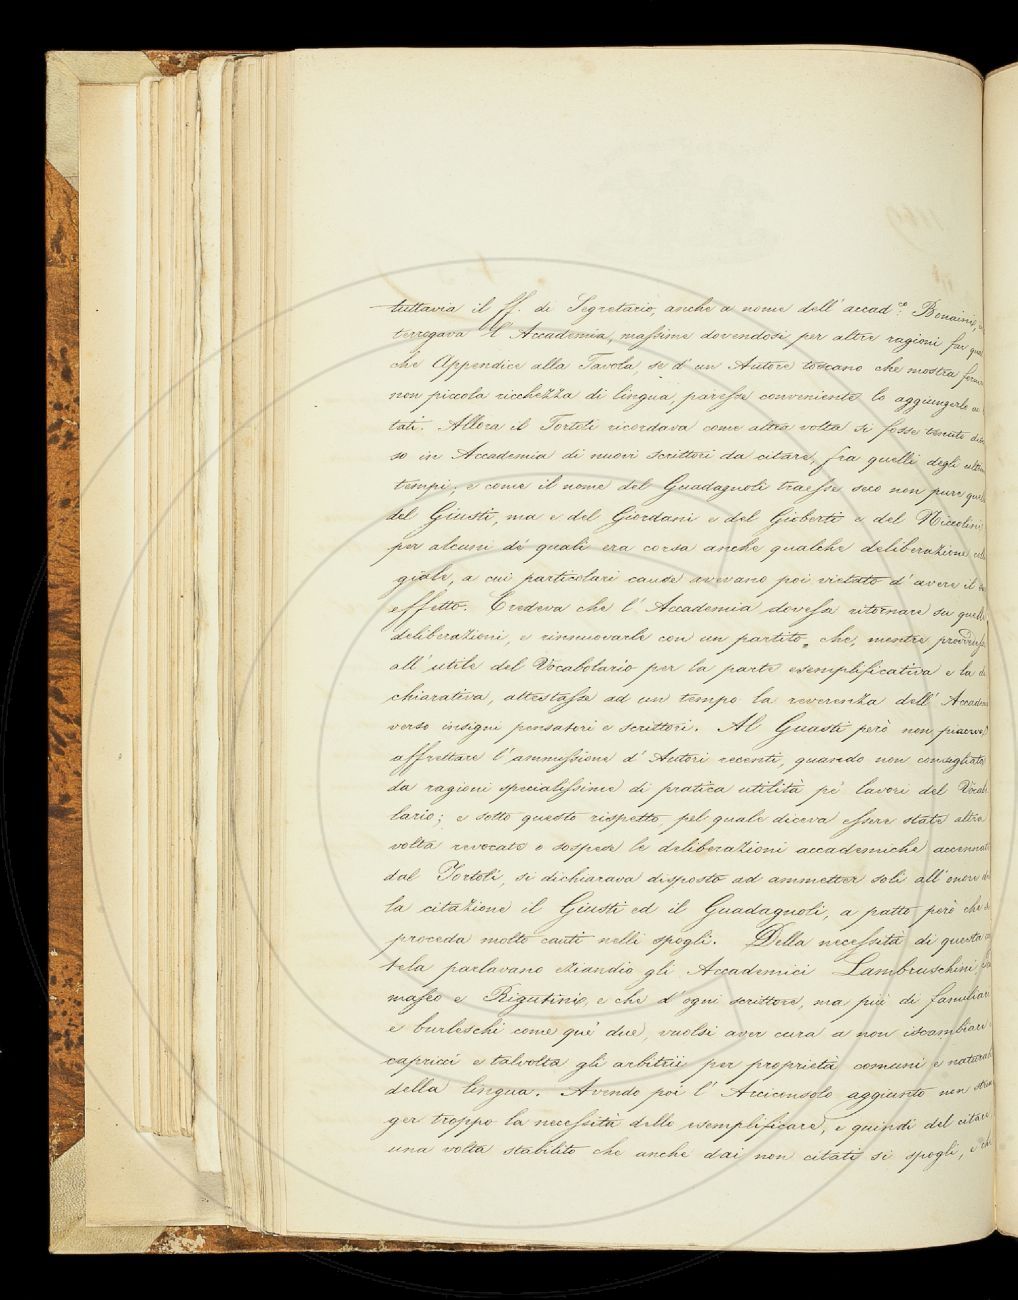 tuttavia il ff. di Segretario, anche a nome dell' accad.co Bonaini,
terrogava l' Accademia, massime dovendosi per altre ragioni far qual
che Appendice alla Tavola, se d' un Autore toscano che mostra
non piccola ricchezza di lingua, paresse conveniente lo aggiungerlo ai
tati. Allora il Tortoli ricordava come altra volta si fosse tenuto dis
so in Accademia di nuovi scrittori da citare, fra quelli degli ultim
tempi; e come il nome del Guadagnoli traesse seco non pure quel
del Giusti, ma e del Giordani e del Gioberti e del Niccolini
per alcuni de' quali era corsa anche qualche deliberazione
giale, a cui particolari cause avevano poi vietato d' avere il
effetto. Credeva che l' Accademia dovesse ritornare su quelle
deliberazioni, e rinnuovarle con un partito, che, mentre provved
all' utile del Vocabolario per la parte esemplificativa e la di
chiarativa, attestasse ad un tempo la reverenza dell' Accadem
verso insigni pensatori e scrittori. Al Guasti però non piaceva
affrettare l' ammissione d' Autori recenti, quando non consigliata
da ragioni specialissime di pratica utilità pe' lavori del Vocab
lario; e sotto questo rispetto pel quale diceva essere state altra
volta revocate o sospese le deliberazioni accademiche accennat
dal Tortoli, si dichiarava disposto ad ammetter soli all' onore d
la citazione il Giusti ed il Guadagnoli, a patto però che si
proceda molto cauti nelli spogli. Della necessità di questa ca
tela parlavano eziandio gli Accademici Lambruschini,
maseo e Rigutini, e che d' ogni scrittore, ma più di familiari
e burleschi come que' due, vuolsi aver cura a non iscambiare i
capricci e talvolta gli arbitrii per proprietà comuni e natural
della lingua. Avendo poi l' Arciconsolo aggiunto non
ger troppo la necessità dello esemplificare, e quindi del citare
una volta stabilito che anche dai non citati si spogli, e ch